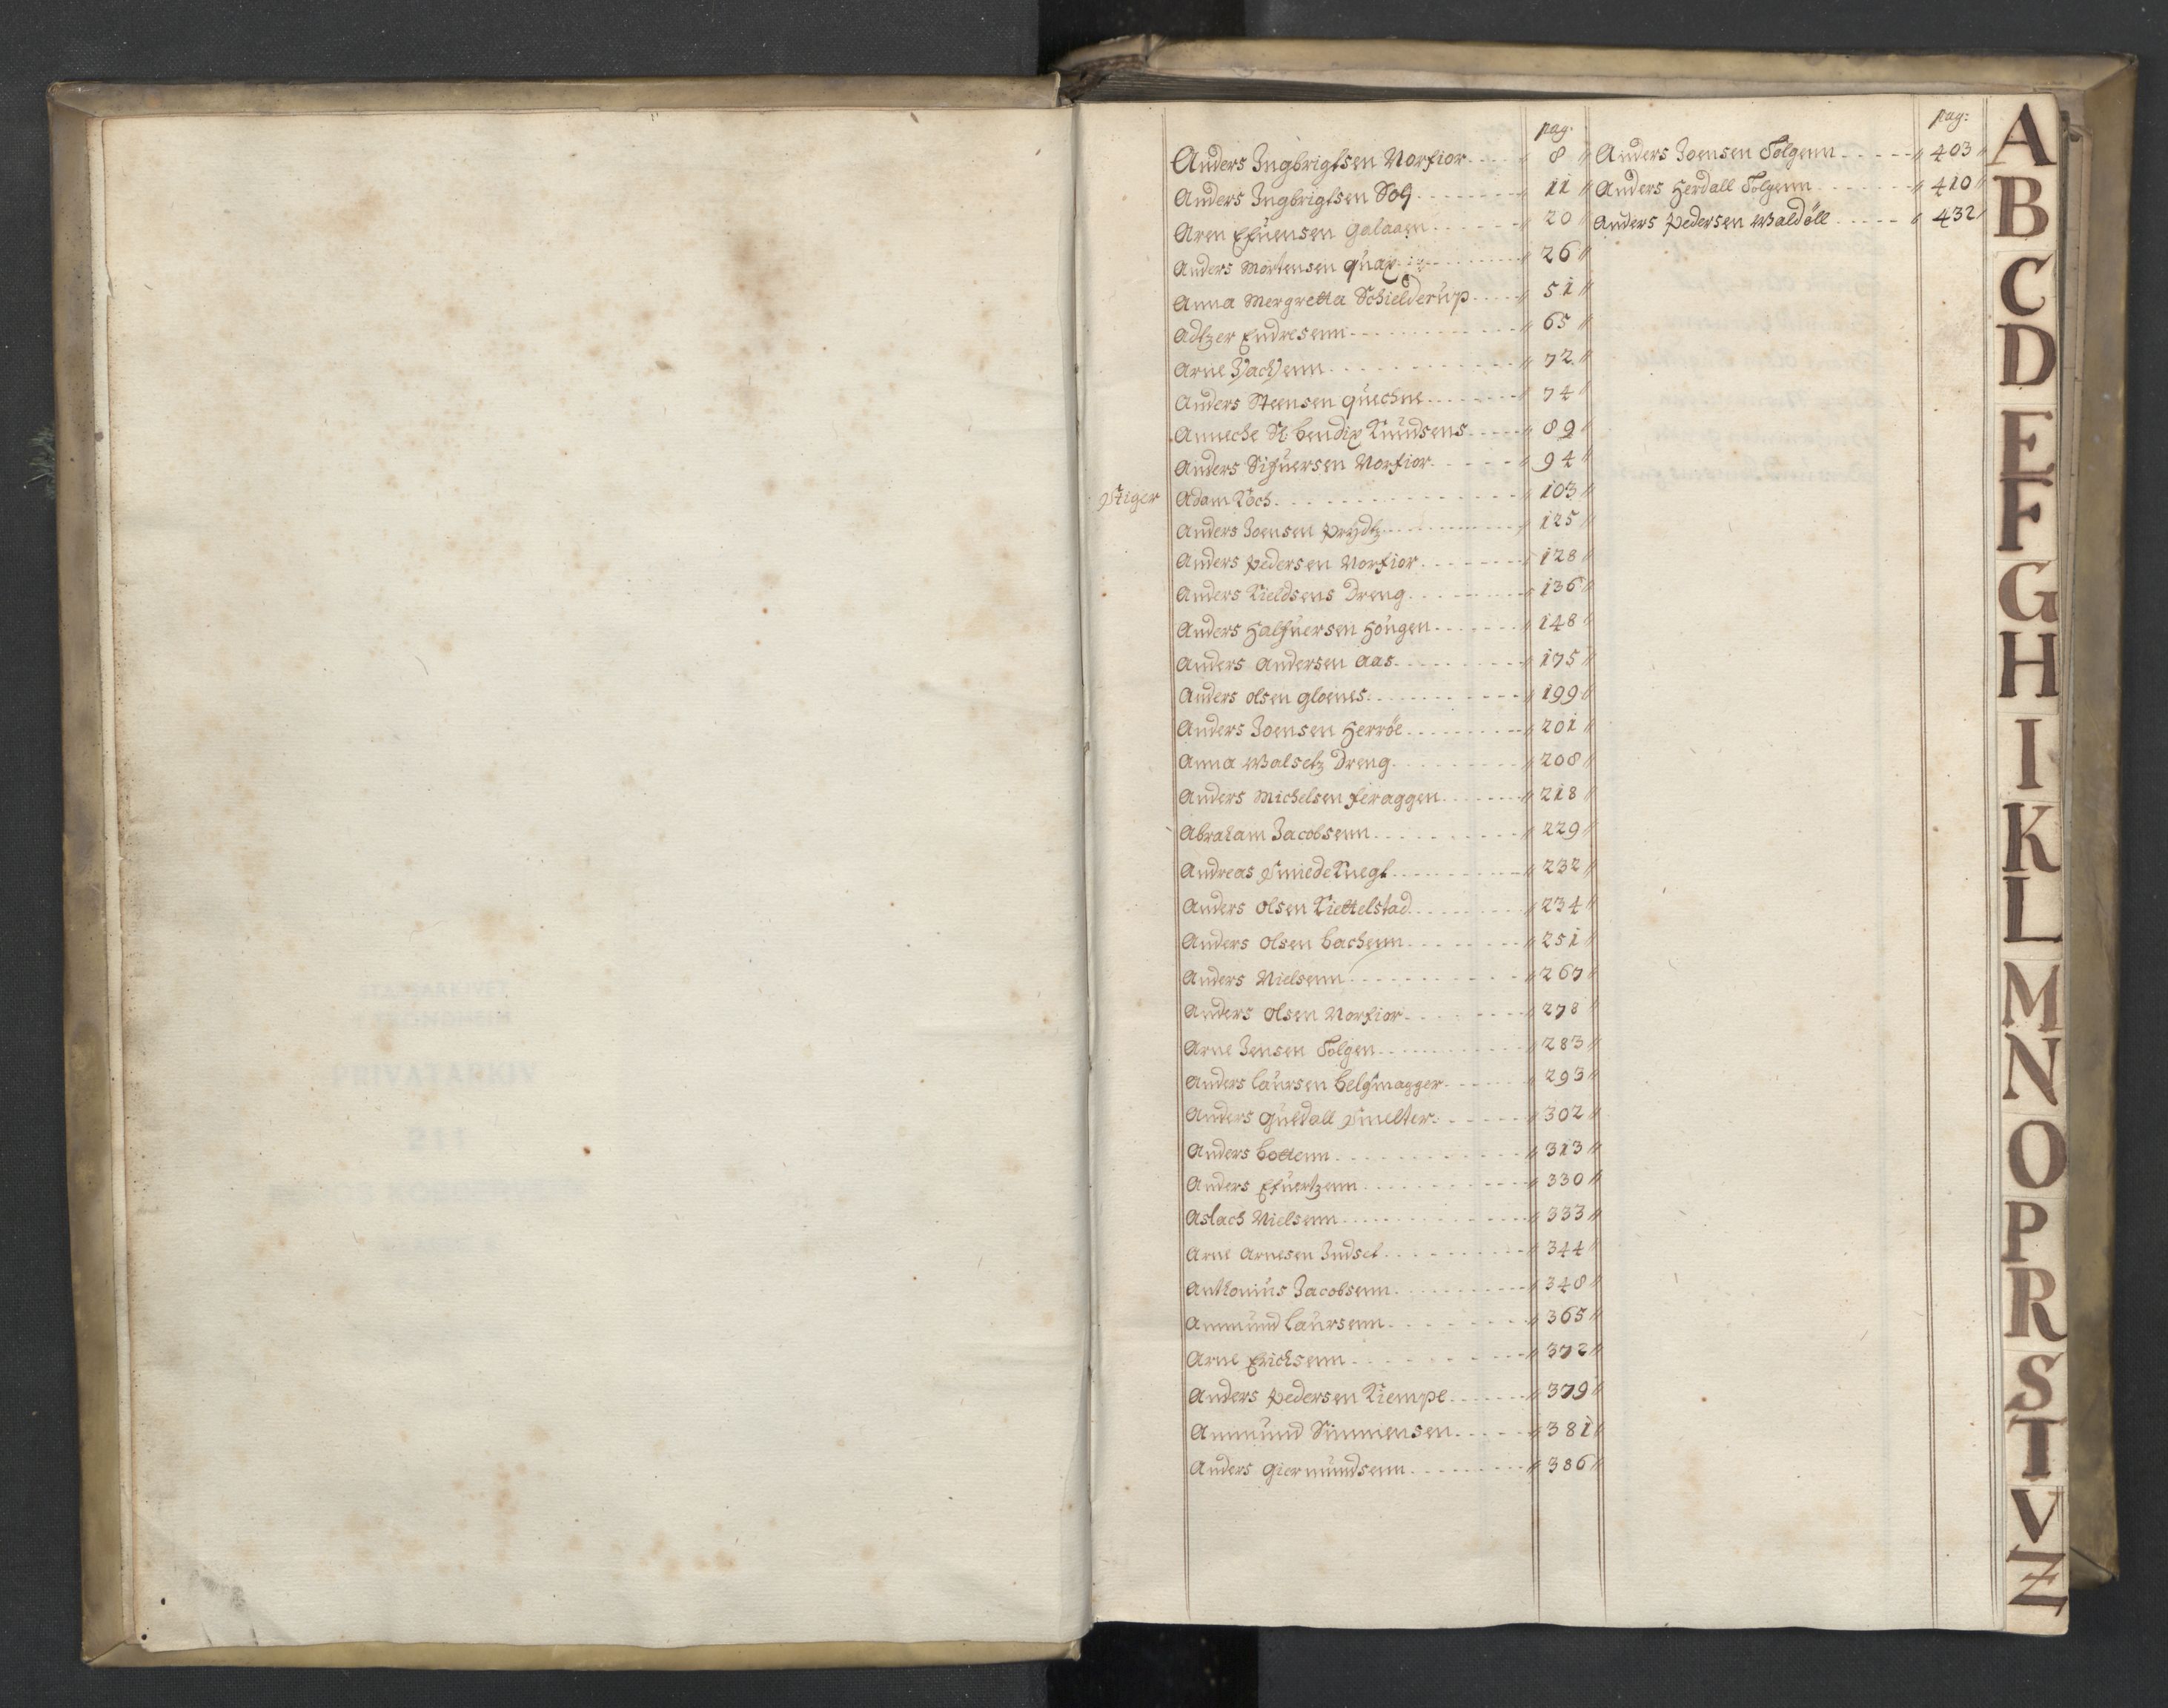 pag:
Anders Ingbrigtsen Norfior 8
Anders Ingbrigtsen 11
Aren Efuensen Galaaen 20
Anders Mortensen Quax 26
Anna Mergretta Schielderup 51
Adtzer Endresenn 65
Arne 72
Anders Steensen Quechne 74
Anneche Sl: Bendix Knudsens 89
Anders Sifuersen Norfior 94
Stiger Adam Koch 103
Anders Joensen Prydtz 125
Anders Pedersen Norfior 128
Anders Kieldsens Dreng 136
Anders Halfuersen Hougen 148
Anders Andersen Aas 175
Anders Olsen Gloenes 199
Anders Joensen Herröe 201
Anna Walsetz Dreng 208
Anders Michelsen Feraggen 218
Abraham Jacobsenn 229
Andreas Smiede Knegt 232
Anders Olsen Kiettelstad 234
Anders Olsen Bachenn 251
Anders Nielsenn 267
Anders Olsen Norfior 278
Arne Jensen Tolgen 283
Anders Laursen Belgmagger 293
Anders Guldall Smelter 302
Anders Bottenn 313
Anders Efuertzenn 330
Aslach Nielsenn 333
Arne Arnesen Indset 344
Anthonius Jacobsenn 348
Ammund Laursenn 365
Arne Erichsenn 372
Anders Pedersen Kiempe 379
Ammund Simmensen 381
Anders Giermundsenn 386
pag:
Anders Joensen Tolgenn 403
Anders Herdall Tolgenn 410
Anders Pedersen Waldöll 432
A
B
C
D
E
F
G
H
I
K
L
M
N
O
P
R
S
T
V
Z
PRIVATARKIV